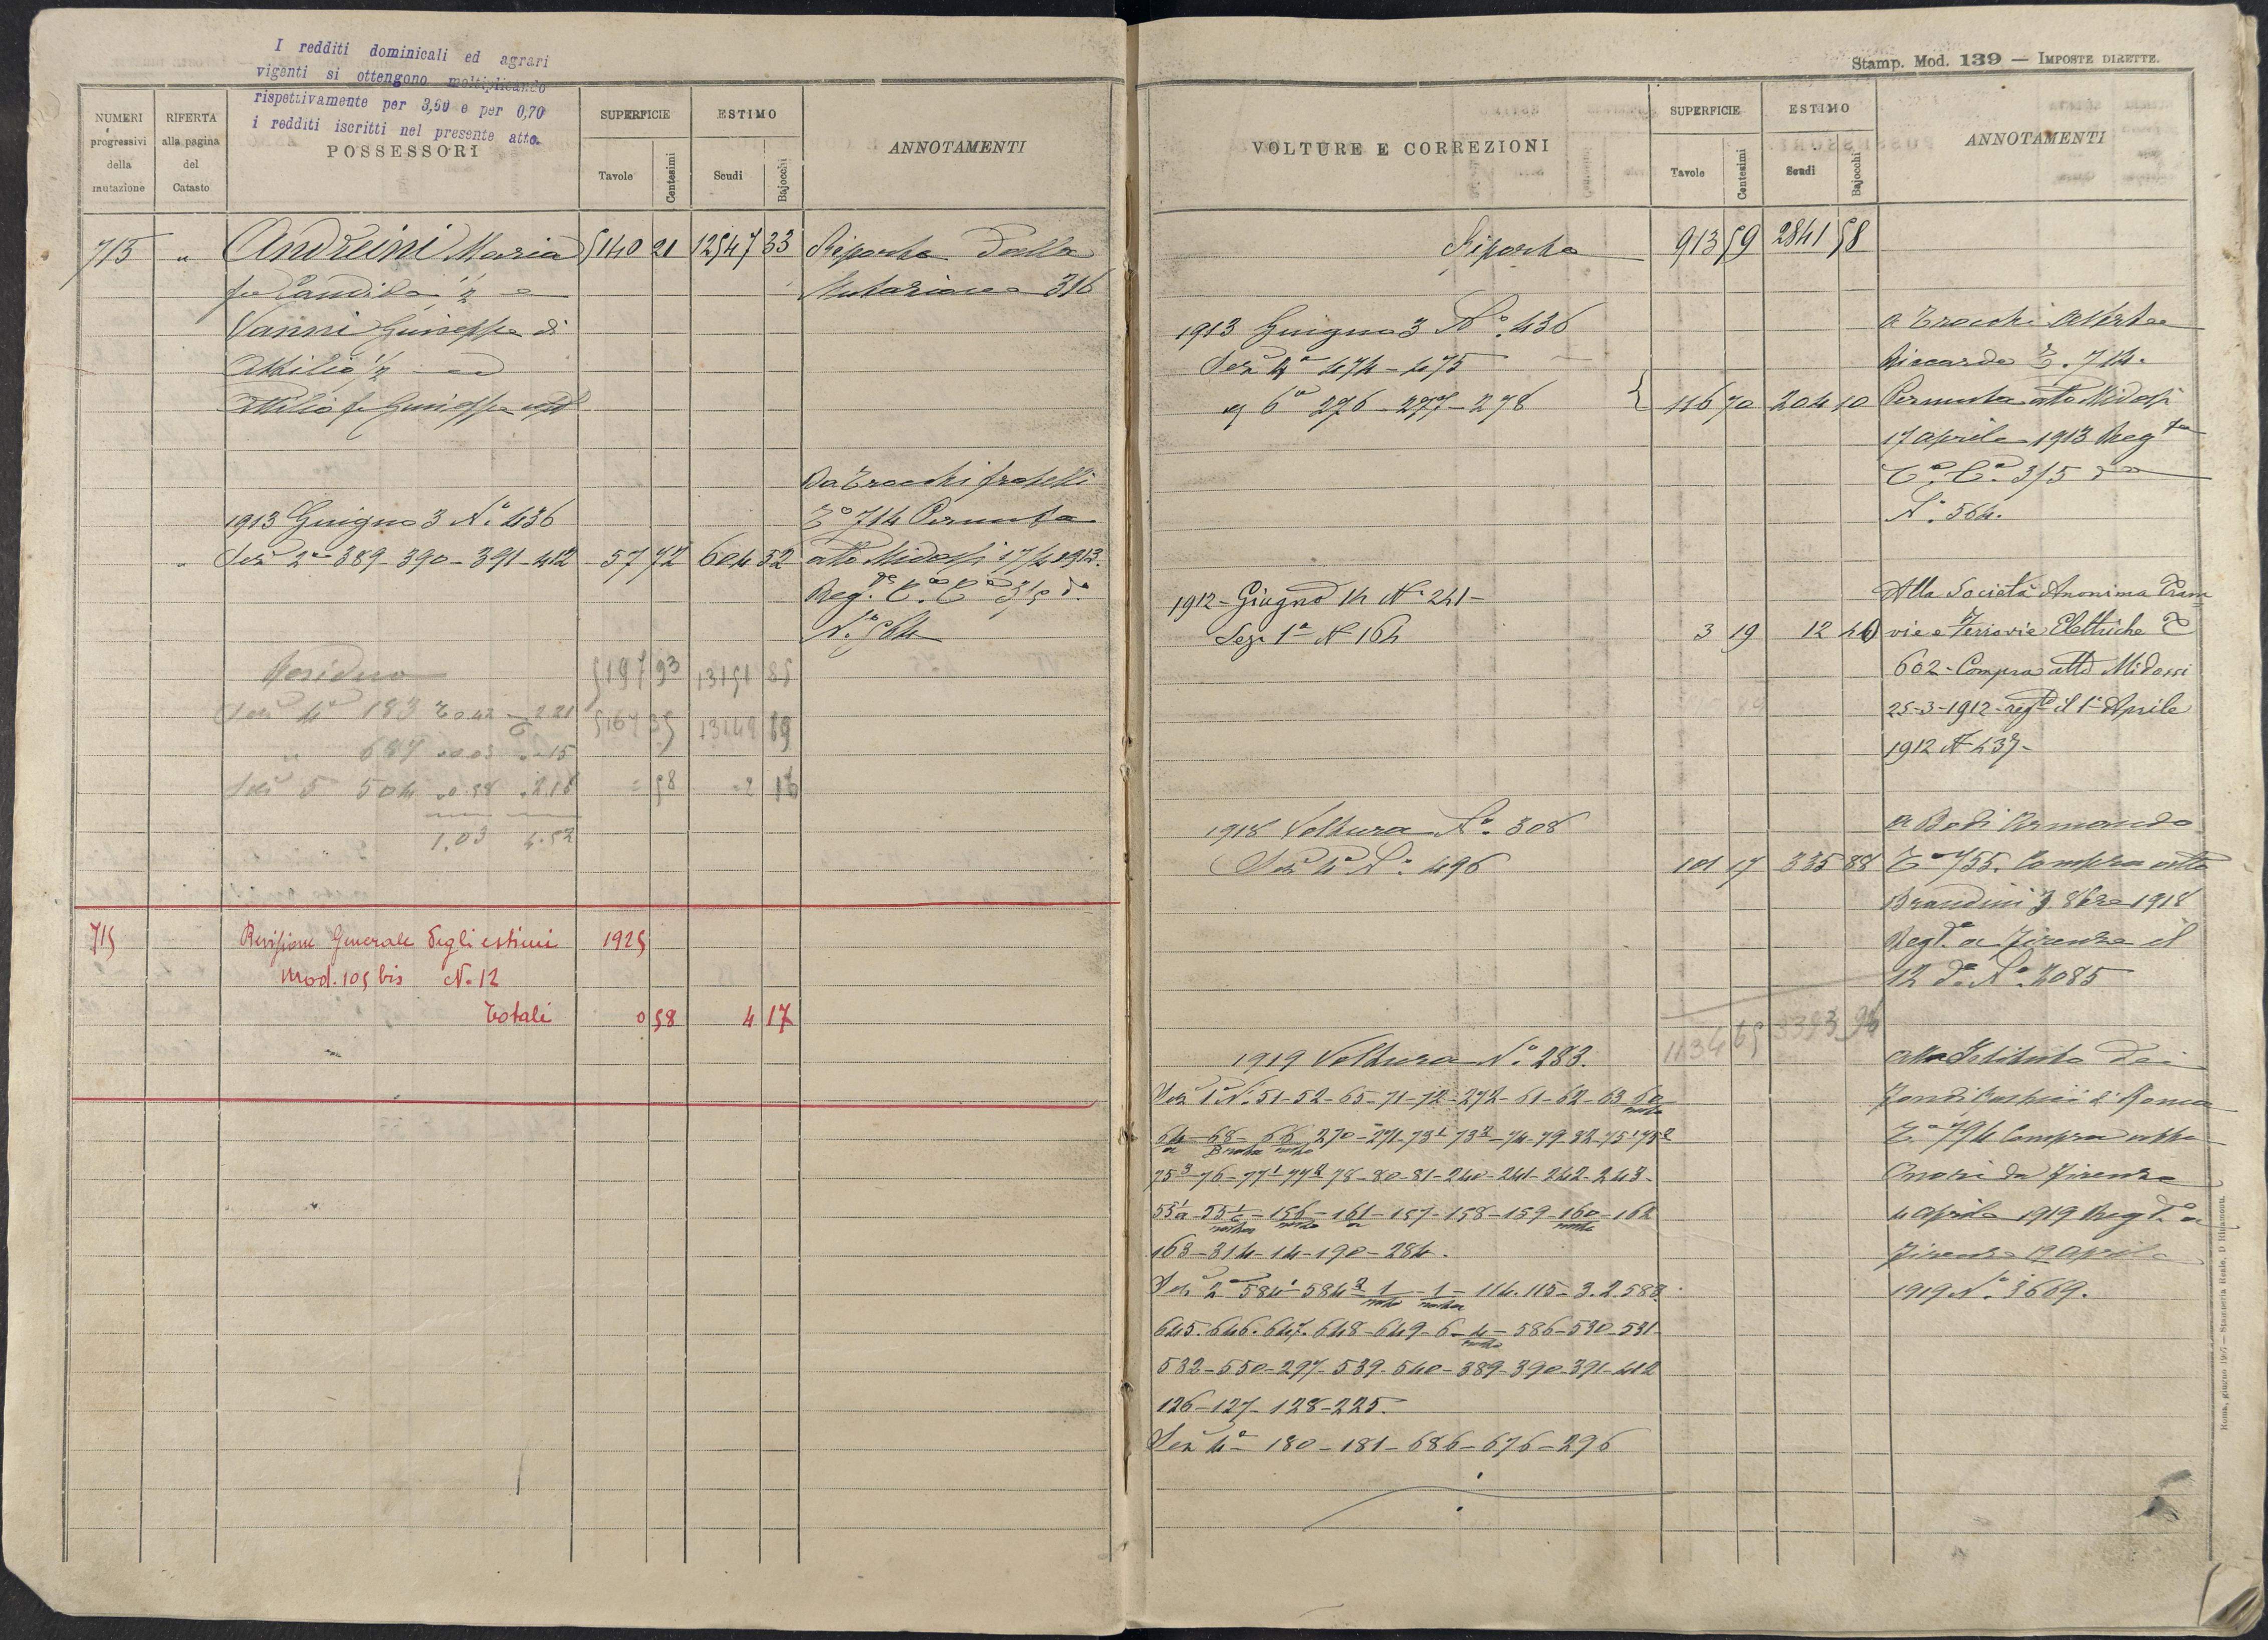 I redditi dominicali ed agrari
vigenti si ottengono moltiplicando
rispettivamente per 3,60 e per 0,70
i redditi iscritti nel presente atto.
NUMERI progressivi della mutazione
RIFERTA alla pagina del Catasto
POSSESSORI
SUPERFICIE
Tavole
Centesimi
ESTIMO
Scudi
Bajocchi
ANNOTAMENTI
715 " Andreini Maria 5140 21 12547 33 Riporto dalla
fu Candido 1/2 e Mutazione 316
Vanni Giuseppe di
Attilio 1/2
Attilio fu Giuseppe usuf
Da Trocchi fratelli
1913 Giugno 3 N.° 436 T° 714 Permuta
" Sez 2a 389-390-391-412 57 72 604 52 atto Midossi 17/4 1913.
Reg.to C.a C.a 315 d.
N.° 564
Residuo 5197 93 13151 85
Sez 4a 183 T 0.42 2.21 5167 35 13149 69
" 687 0.03 15
Sez 5 504 0.58 2.16 = 58 =2 16
1.03 4.52
715 Revisione Generale degli estimi 1925
Mod. 105 bis N. 12
Totali 0 58 4 17
Stamp. Mod. 139 — IMPOSTE DIRETTE.
VOLTURE E CORREZIONI
SUPERFICIE
Tavole
Centesimi
ESTIMO
Scudi
Bajocchi
ANNOTAMENTI
Riporto 913 59 2841 58
1913 Giugno 3 N.° 436 a Trocchi Alberto e
Sez 4a 474-475 Riccardo T. 714.
" 6a 276-277-278 116 70 204 10 Permuta atto Midossi
17 aprile 1913 Reg.to
C.a C.a 315 d
N.° 564.
1912 - Giugno 14 N° 241 - Alla Società Anonima Tram
Sez. 1a N 164 3 19 12 40 vie e Ferrovie Elettriche T
602 - Compra atto Midossi
25-3-1912 - reg.to il 1° Aprile
1912 N 437 -
1918 Voltura N.° 308 a Bodi Armando
Sez 4a N.° 496 101 17 335 88 T° 755. Compra atto
Brandini 3 8bre 1918
Reg.to a Firenze il
12 d.o N.° 2085
1134 65 3393 96
1919 Voltura N.° 283. alla Istituto dei
Sez 1a N.° 51-52-65-71-72-272-61-62-63-60 Fondi Rustici di Roma
64-68-66-270-271-73 1-73 2-74-79-82-75 1-75 2 T.° 794 Compra atto
75 3-76-77 1-77 2-78-80-81-240-241-242-243- da Firenze
156-161-157-158-159-160-162 4 aprile 1919 Reg.to a
163-314-14-190-284. Firenze aprile
Sez 2a 584 1-584 2-1-1-114-115-3.2.583. 1919 N.° 3669.
645.646.647.648-649-6-4-586-530-531-
532-550-297-539-540-389-390-391-412
126-127-128-225.
Sez 4a 180-181-686-676-296